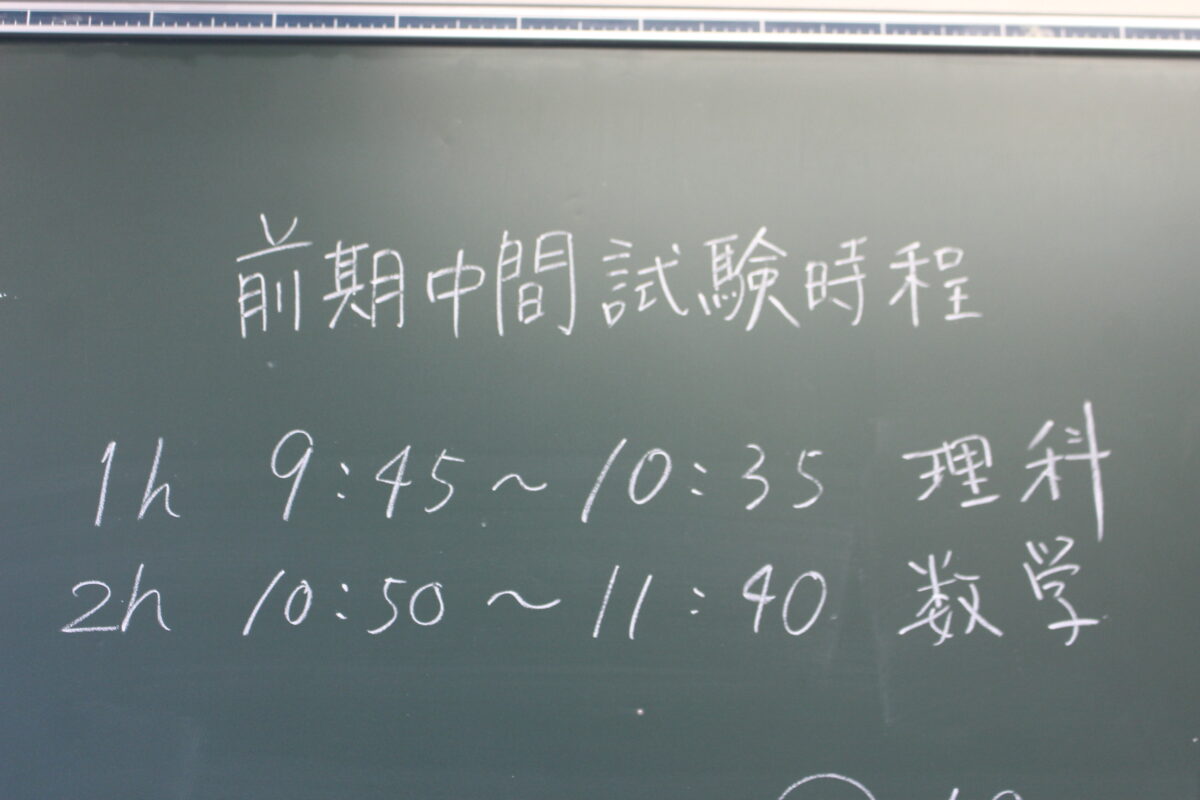 前期中間試験時程
1h 9:45～10:35 理科
2h 10:50～11:40 数学